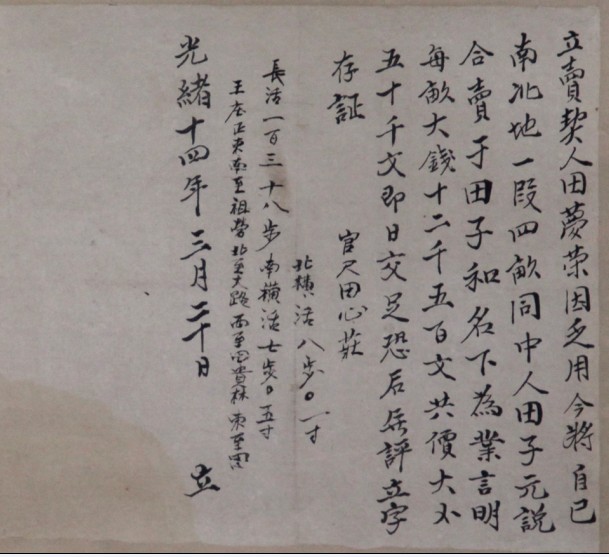 立賣契人田夢荣因乏用今將自己
南北地一段四畝同中人田子元說
合賣于田子和名下為業言明
每畝大錢十二千五百文共價大
五十千文即日交足恐后無評立字
存証 官尺田心莊
北横活八步〇一寸
長活一百三十八步南横活七步〇五寸
王庄正東南至祖塋北至大路西至田貴林東至
光緒十四年三月二十日 立